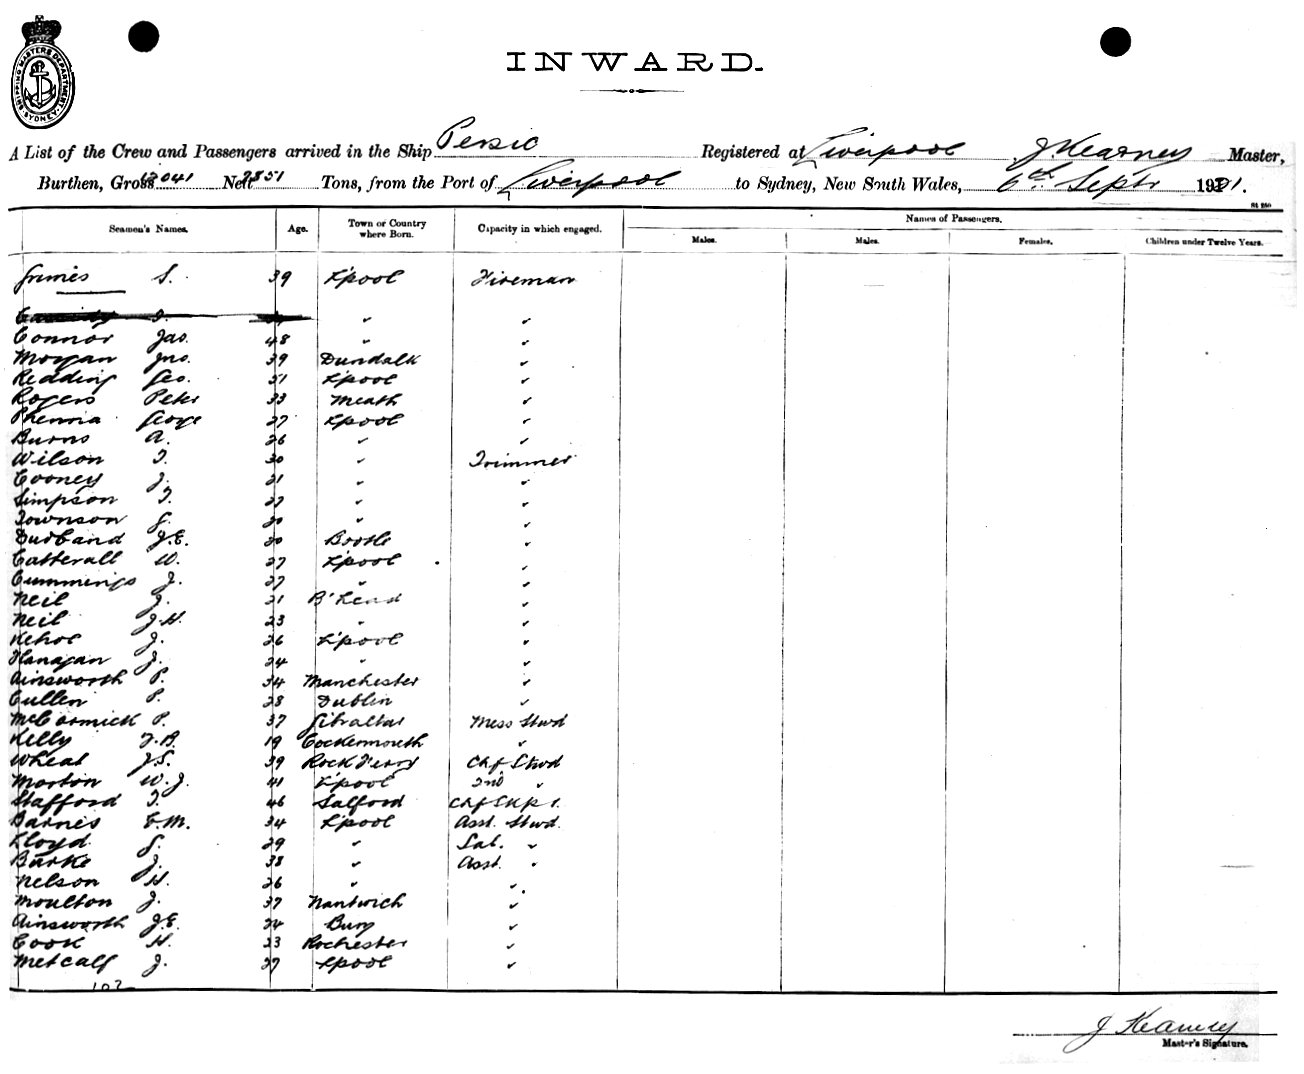 SHIPPING MASTERS DEPARTMENT
SYDNEY
INWARD.
A List of the Crew and Passengers arrived in the Ship Persic Registered at Liverpool J. Kearney Master,
Burthen, Gross 12041 Nett 7851 Tons, from the Port of Liverpool to Sydney, New South Wales, 6th Septr 1921.
Seamen's Names. Age. Town or Country where Born. Capacity in which engaged. Names of Passengers.
Males. Males. Females. Children under Twelve Years.
Grimes S. 39 L'pool Fireman
Cassidy T. " "
Connor Jas. 48 " "
Morgan Jno. 39 Dundalk "
Redding Geo. 51 L'pool "
Rogers Peter 33 Meath "
Phenna George 27 L'pool "
Burns A. 26 " "
Wilson T. 30 " Trimmer
Cooney J. 21 " "
Simpson T. 27 " "
Townson G. 20 " "
Dusband J.E. 20 Bootle "
Catterall W. 27 L'pool "
Cummings J. 27 " "
Neil J. 21 B'head "
Neil J.H. 23 " "
Kehoe J. 26 L'pool "
Flanagan J. 24 " "
Ainsworth P. 34 Manchester "
Cullen P. 28 Dublin "
McCormick P. 37 Gibraltar Mess Stwd
Kelly J.B. 19 Cockermouth "
Wheat J.S. 39 Rock Ferry Chf Stwd
Morton W.J. 41 L'pool 2nd "
Stafford T. 46 Salford Chf
Barnes E.M. 34 L'pool Asst. Stwd.
Lloyd G. 29 " Sal. "
Burke J. 38 " Asst. "
Nelson H. 26 " "
Moulton J. 37 Nantwich "
Ainsworth J.E. 24 Bury "
Cook H. 23 Rochester "
Metcalf J. 27 L'pool "
J Kearney
Master's Signature.